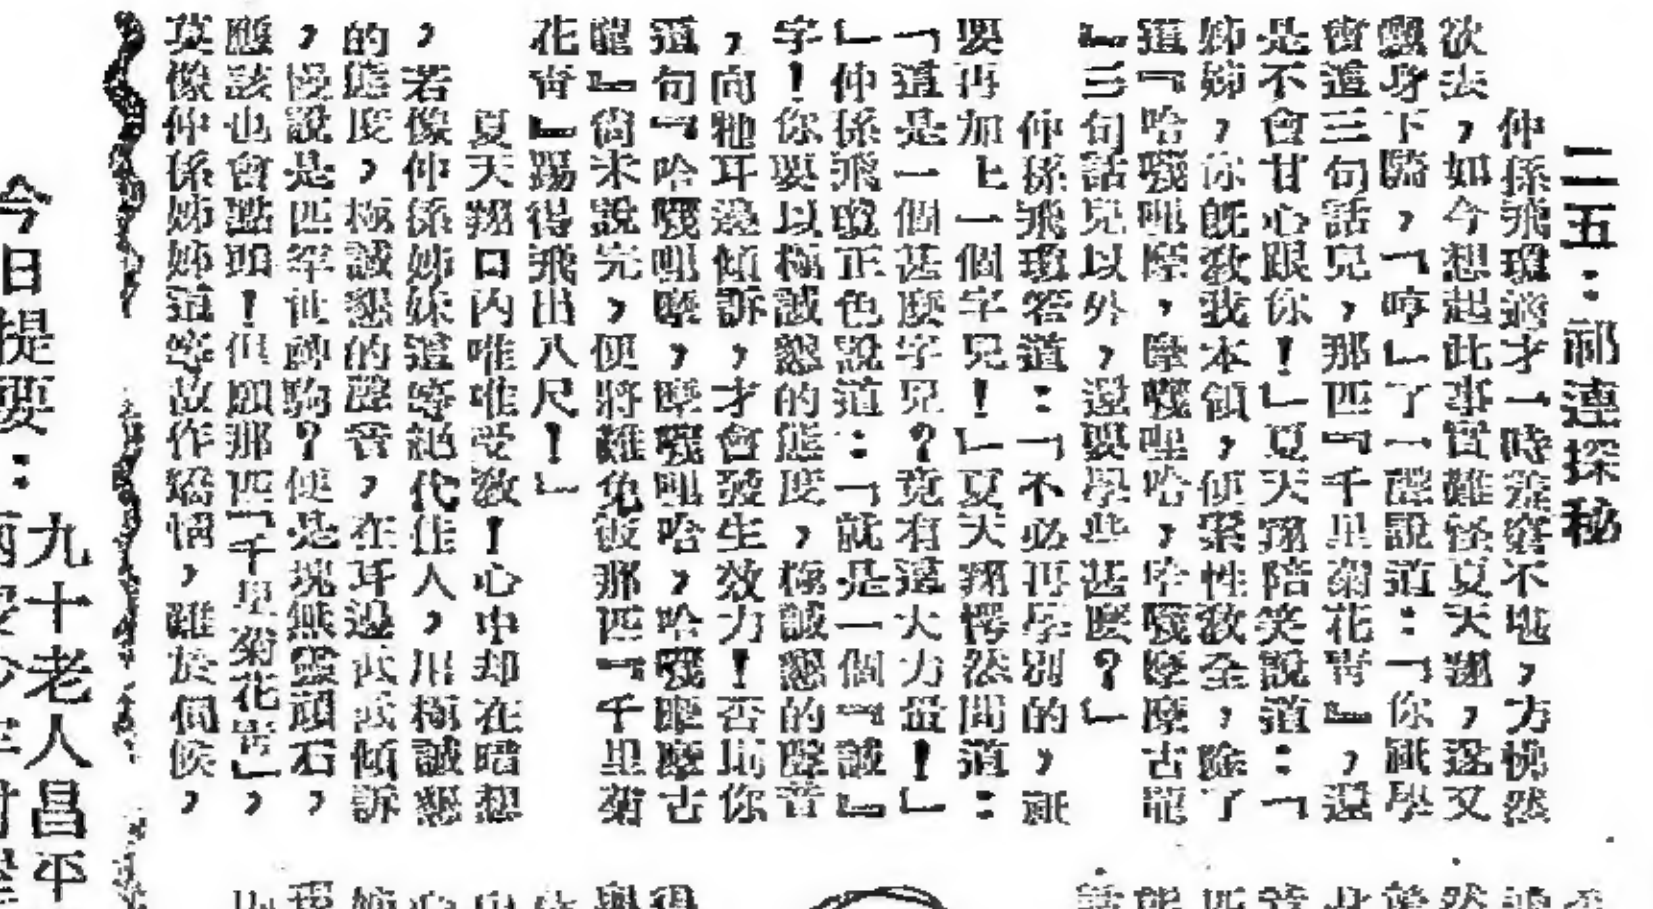 二五：祁連探秘
仲孫飛瓊適才一時羞窘不堪，方怫然
欲去，如今想起此事實難怪夏天翔，遂又
翻身下騎，「哼」了一聲說道：「你祗學
會這三句話兒，那匹『千里菊花青』，還
是不會甘心跟你！」夏天翔陪笑說道：「
姊姊，你既敎我本領，便索性敎全，除了
這『哈嘎呲摩，摩嘎哩哈，哈嘎摩摩古龍
』三句話兒以外，還要學些甚麼？」
仲孫飛瓊答道：「不必再學別的，祗
要再加上一個字兒！」夏天翔愕然問道：
「這是一個甚麼字兒？竟有這大力量！」
仲孫飛瓊正色說道：「就是一個『誠』
字！你要以極誠懇的態度，極誠懇的聲音
，向牠耳邊傾訴，才會發生效力！否則你
這句『哈嘎呲摩，摩嘎呲哈，哈嘎摩摩古
龍』尙未說完，便將難免被那匹『千里菊
花青』踢得飛出八尺！」
夏天翔口內唯唯受敎！心中却在暗想
，若像仲孫姊妹這等絕代佳人，用極誠懇
的態度，極誠懇的聲音，在耳邊低低傾訴
，慢說是匹罕世神駒？便是塊無靈頑石，
應該也會點頭！但願那匹「千里菊花青」，
莫像仲孫姊姊這等故作矯情，難於伺候，
今日提要：
九十老人昌平